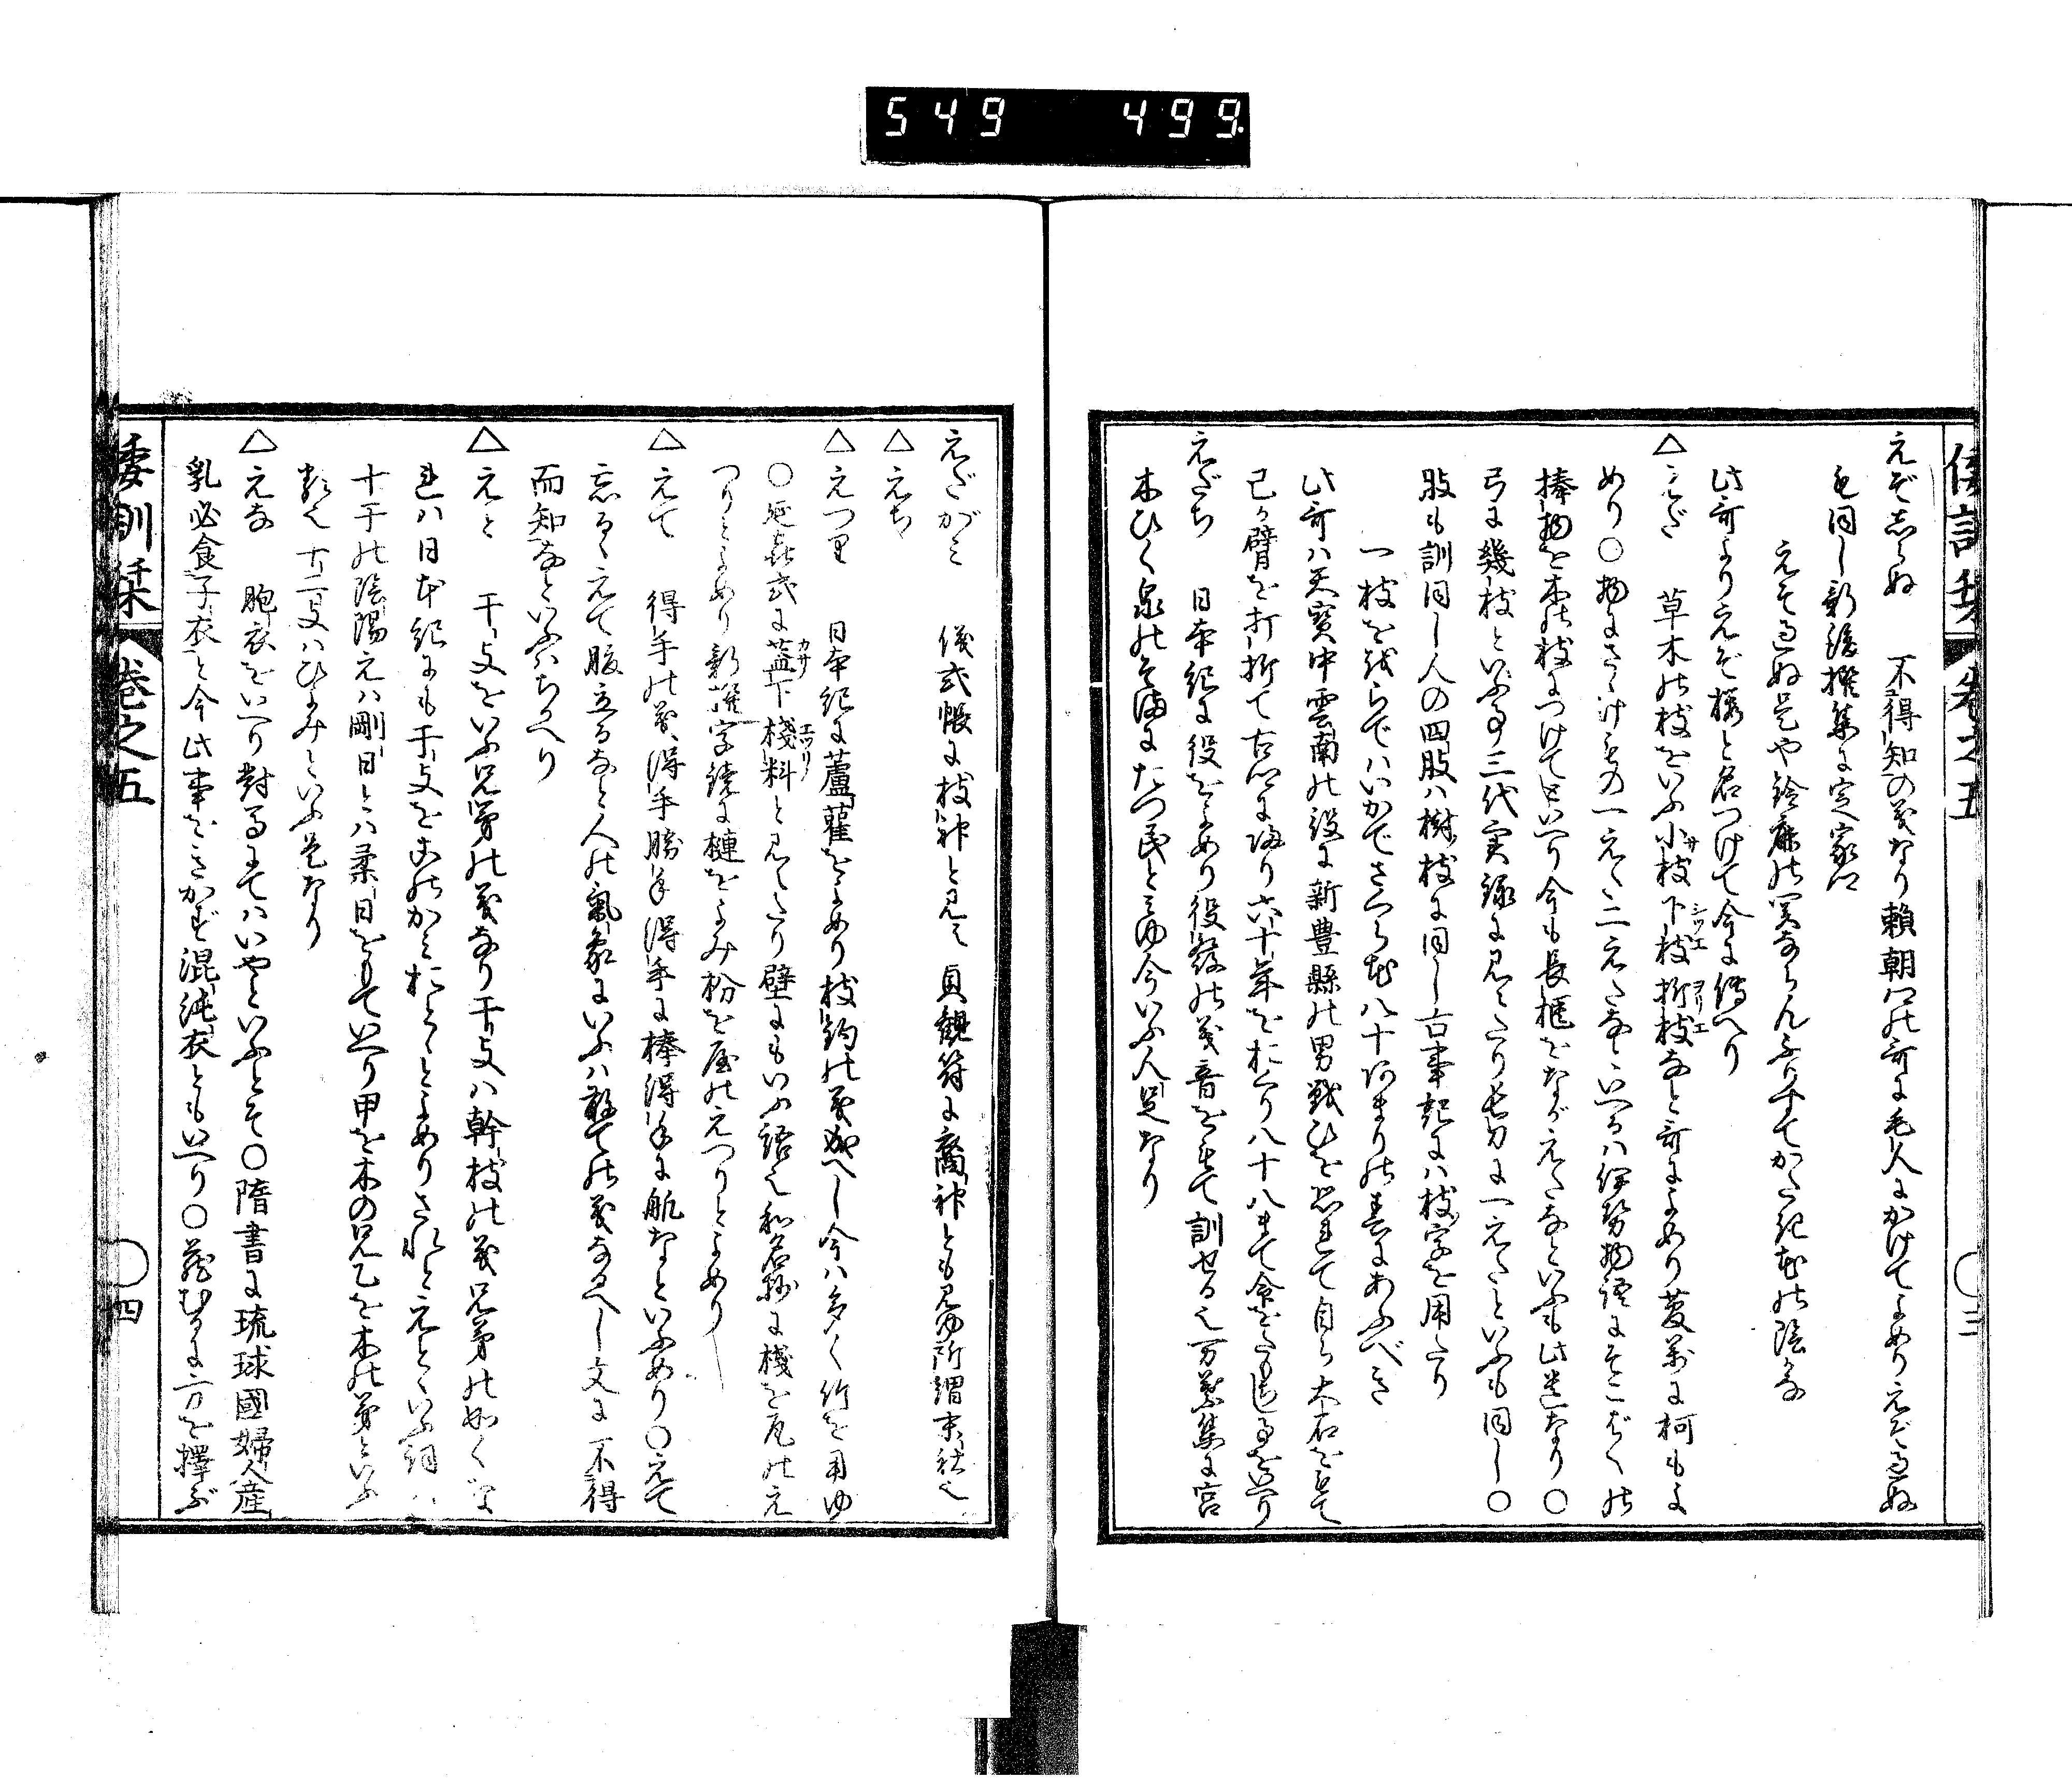 549 499
倭訓栞 卷之五 〇三
えぞしらぬ 不得知の義なり頼朝卿の哥に毛人にかけてよめりえぞ過ぬ
も同し新後撰集に定家卿
えそ過ぬ是や鈴鹿の関ならんふりすてかたき花の陰かな
此哥よりえぞ櫻と名つけて今に傳へり
△えだ 草木の枝をいふ小枝下枝折枝など哥によめり万葉に柯もよ
サ シツエ ヲリエ
めり〇物にさゝけもの一えだ二えだなどいへるハ伊勢物語にそこばくの
捧物を木の枝につけてといへり今も長櫃をながえだなどいふも此意なり〇
弓に幾枝といふ事三代実録に見えたり長刀に一えだといふも同し〇
肢も訓同し人の四肢ハ樹枝に同し古事記にハ枝字を用たり
一枝を折らでハいかでさくら花八十あまりの春にあふべき
此哥ハ天寳中雲南の役に新豊縣の男戦ひを恐れて自ら大石をもて
己か臂を打折て古郷に帰り六十年をおくり八十八まて命をたもてし事をいへり
えだち 日本紀に役をよめり役發の義音をもて訓せる也万葉集に宮
木ひく泉のそまにたつ民とみゆ今いふ人足なり
えだがみ 儀式帳に枝神と見え貞観符に裔神とも見ゆ所謂末社也
△えち
△えつり 日本紀に蘆雚をよめり枝鈎の義成へし今ハ多く竹を用ゆ
〇延喜式に葢下棧料と見えたり壁にもいふ語也和名抄に棧を瓦のえ
カサ エツリノ
つりとよめり新撰字鏡に槤をよみ枌を屋のえつりとよめり
△えて 得手の義、得手勝手得手に棒得手に帆なといふめり〇えて
忘るゝえて腹立るなと人の氣象にいふハ敢ての義なるへし文に不得
而知なといふハちかへり
△えと 干支をいふ兄弟の義なり干支ハ幹枝の義兄弟の如くな
れハ日本紀にも干支をゑのかみおとゝとよめりされとえとゝいふ詞ハ
十干の陰陽えハ剛日とハ柔日をもていへり甲を木の兄乙を木の弟といふ
類也十二支ハひよみといふ是なり
△えな 胞衣をいへり對馬にてハいやといふとそ〇隋書に琉球國婦人産
乳必食子衣と今此事をきかず混沌衣ともいへり〇蔵むるに方を擇ぶ
倭訓栞 卷之五 〇四